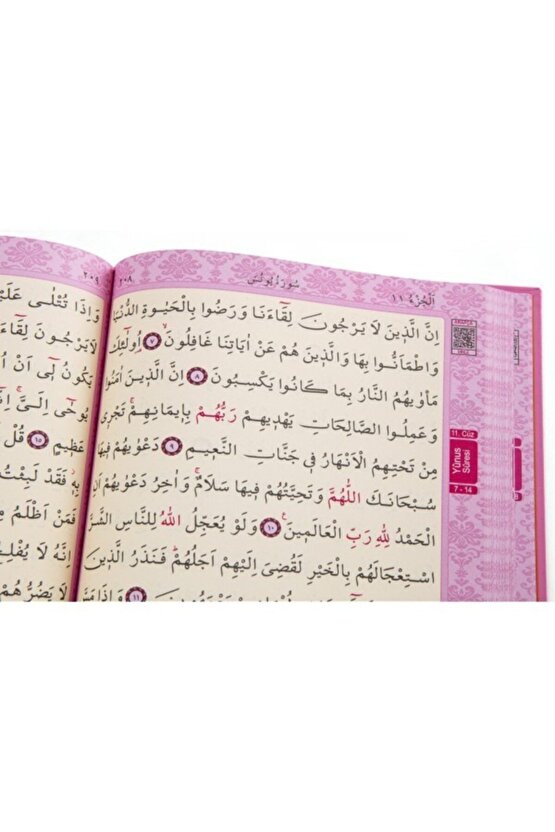 ٢٠٨
سُورَةُ يُونُسَ
اَلْجُزْءُ ١١
اِنَّ الَّذ۪ينَ لَا يَرْجُونَ لِقَٓاءَنَا وَرَضُوا بِالْحَيٰوةِ الدُّنْيَا
وَاطْمَاَنُّوا بِهَا وَالَّذ۪ينَ هُمْ عَنْ اٰيَاتِنَا غَافِلُونَۙ ٧ اُو۬لٰٓئِكَ
مَأْوٰيهُمُ النَّارُ بِمَا كَانُوا يَكْسِبُونَ ٨ اِنَّ الَّذ۪ينَ اٰمَنُوا
وَعَمِلُوا الصَّالِحَاتِ يَهْد۪يهِمْ رَبُّهُمْ بِا۪يمَانِهِمْۚ تَجْر۪ي
مِنْ تَحْتِهِمُ الْاَنْهَارُ ف۪ي جَنَّاتِ النَّع۪يمِ ٩ دَعْوٰيهُمْ ف۪يهَا
سُبْحَانَكَ اللّٰهُمَّ وَتَحِيَّتُهُمْ ف۪يهَا سَلَامٌۚ وَاٰخِرُ دَعْوٰيهُمْ اَنِ
الْحَمْدُ لِلّٰهِ رَبِّ الْعَالَم۪ينَ۟ ١٠ وَلَوْ يُعَجِّلُ اللّٰهُ لِلنَّاسِ الشَّرَّ
اسْتِعْجَالَهُمْ بِالْخَيْرِ لَقُضِيَ اِلَيْهِمْ اَجَلُهُمْۜ فَنَذَرُ الَّذ۪ينَ
١١ وَاِذَا مَسَّ
11. Cüz
Yûnus
Sûresi
7 - 14
٢٠٩
وَاِذَا تُتْلٰى
لَا يَرْجُونَ
يَكُونُ ل۪ٓي اَنْ
يُوحٰٓى اِلَيَّۚ
عَظ۪يمٍ ١٥ قُلْ
بِه۪ۘ فَقَدْ لَبِثْتُ
فَمَنْ اَظْلَمُ
اِنَّهُ لَا
لَا يَضُرُّهُمْ